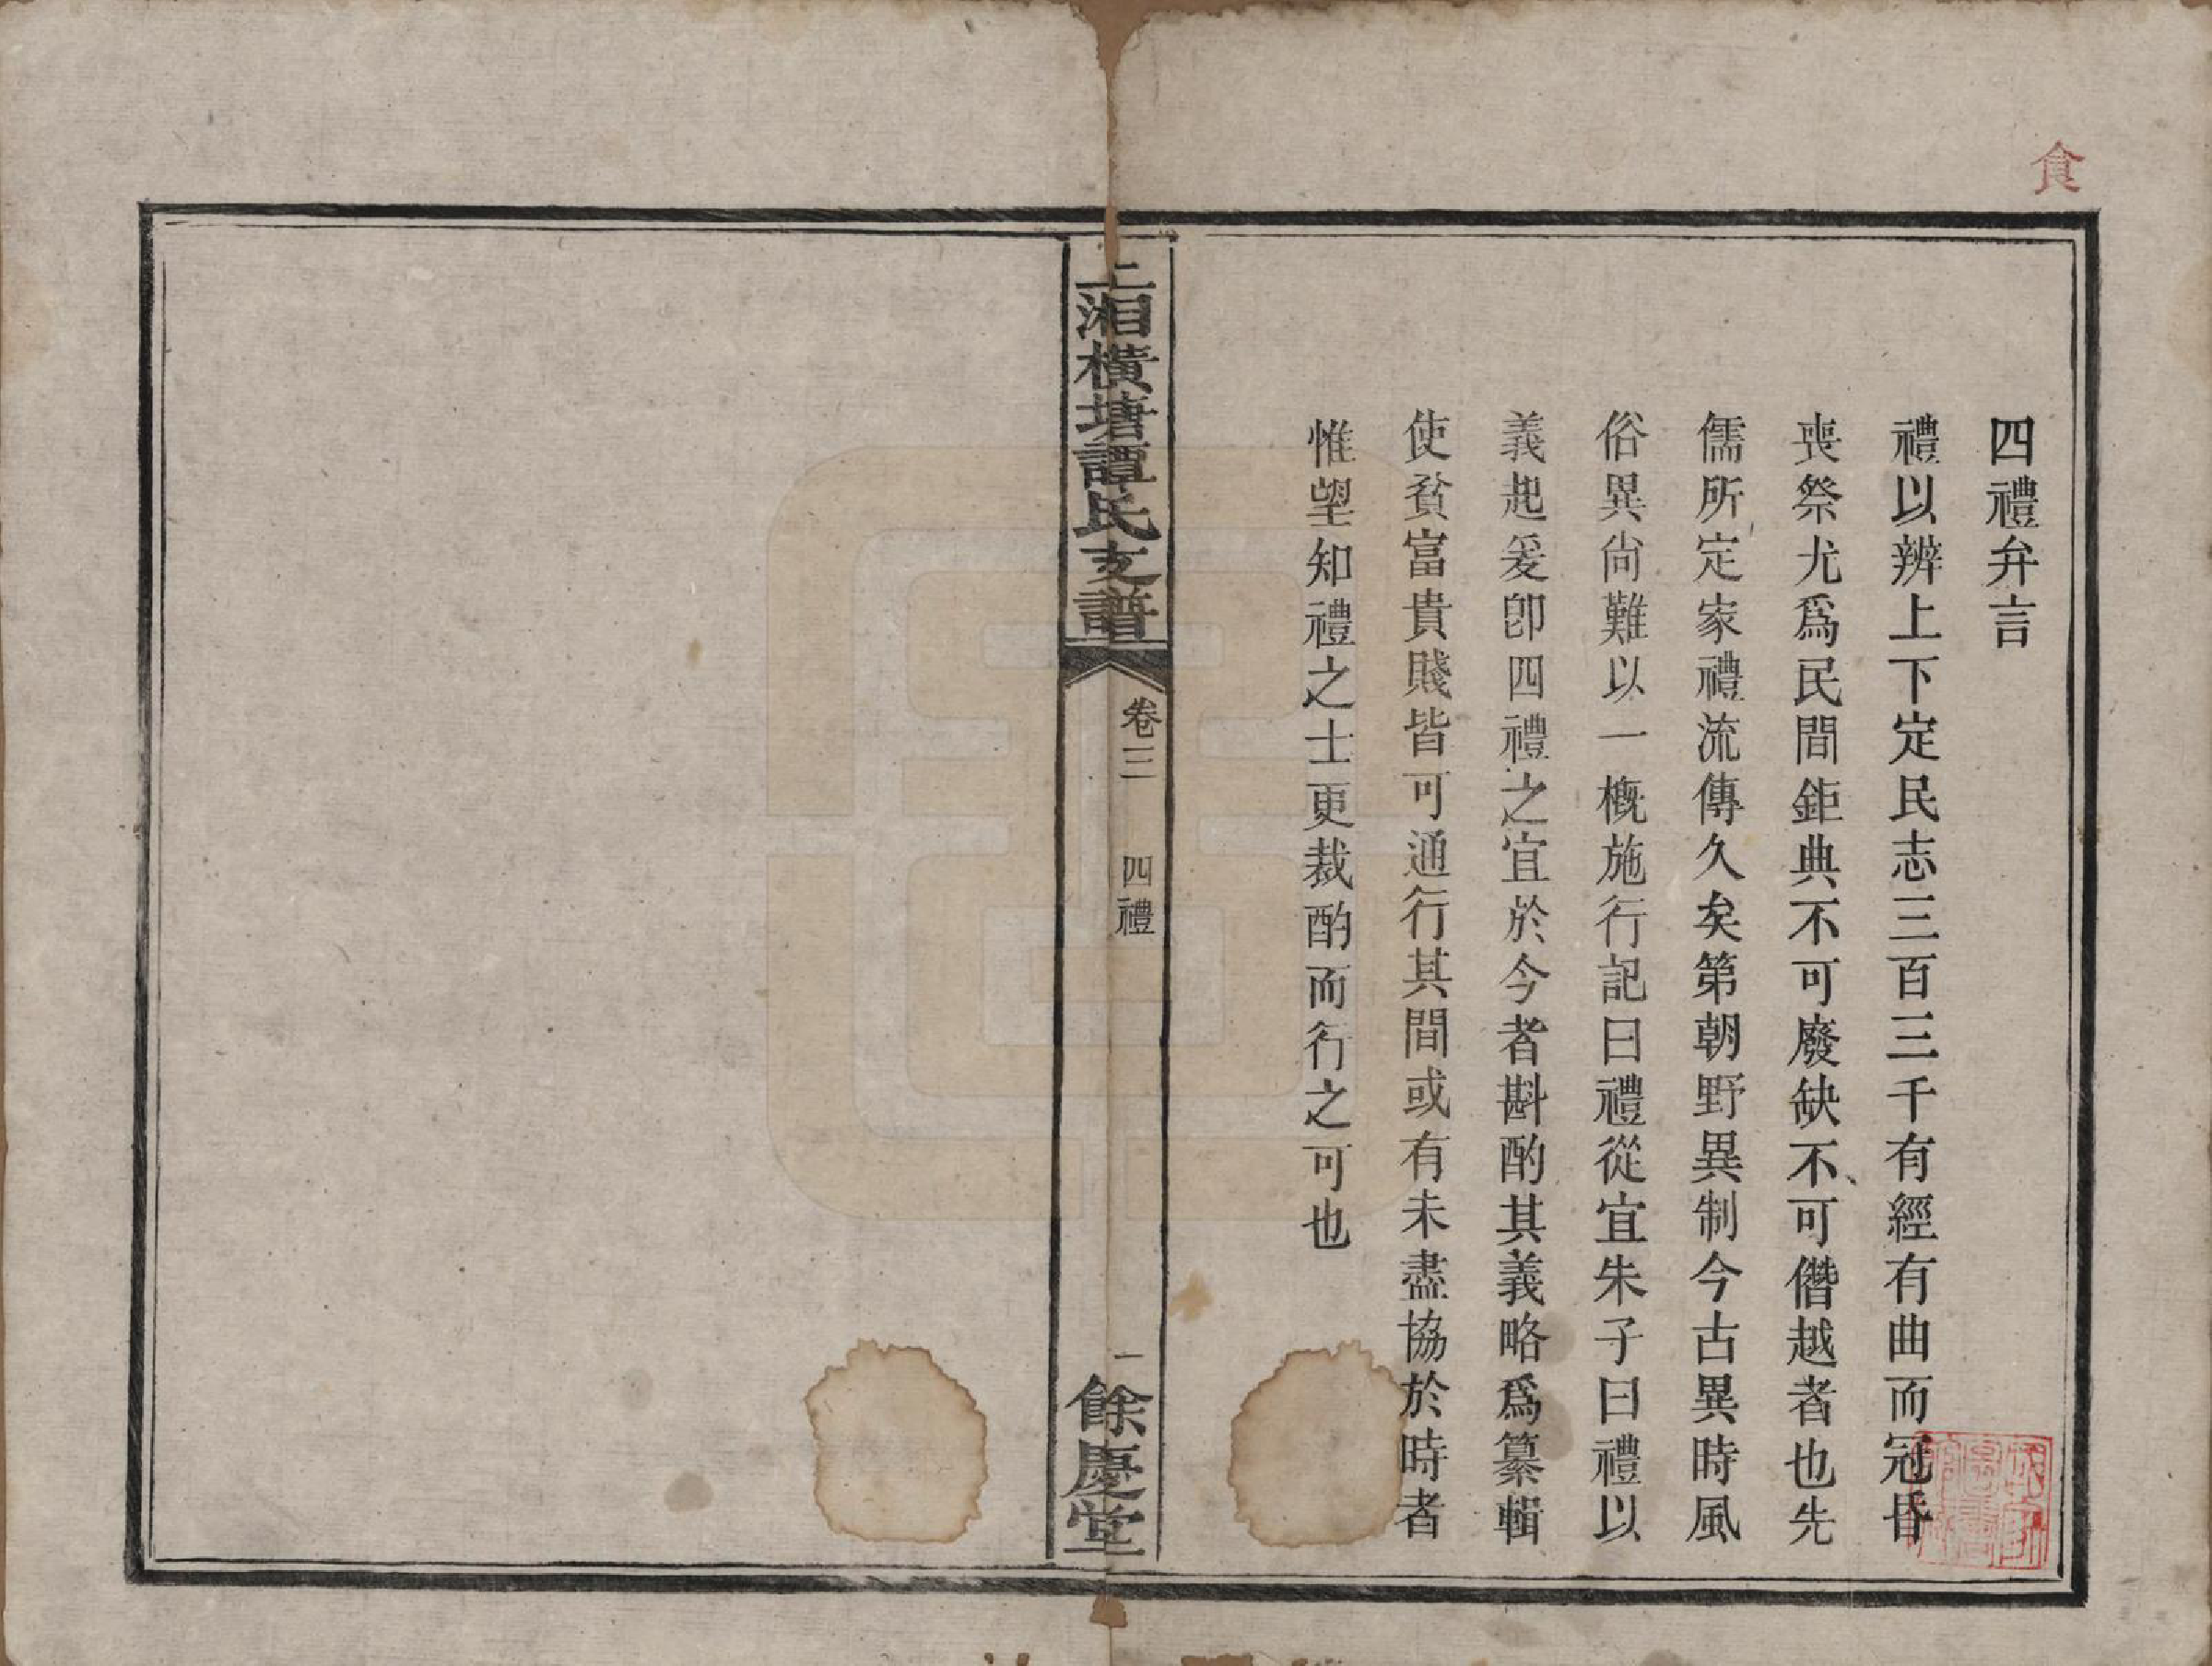 食
四禮弁言
禮以辨上下定民志三百三千有經有曲而冠昏
喪祭尤爲民間鉅典不可廢缺不可僭越者也先
儒所定家禮流傳久矣第朝野異制今古異時風
俗異尚難以一概施行記曰禮從宜朱子曰禮以
義起爰卽四禮之宜於今者斟酌其義略爲纂輯
使貧富貴賤皆可通行其間或有未盡協於時者
惟望知禮之士更裁酌而行之可也
上湘橫塘譚氏支譜
卷三 四禮
一
餘慶堂